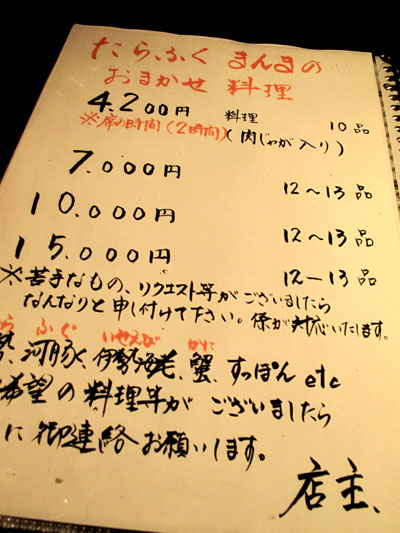 たらふくまんまの
おまかせ 料理
4.200円 料理 10品
※席の時間(2時間)(肉じゃが入り)
7.000円 12~13品
10.000円 12~13品
15.000円 12―13品
※苦手なもの、リクエスト等がございましたら
なんなりと申し付けて下さい。係が対応いたします。
ら ふぐ いせえび かに
河豚、伊勢海老、蟹、すっぽん etc
希望の料理等がございましたら
に御連絡お願いします。
店主、